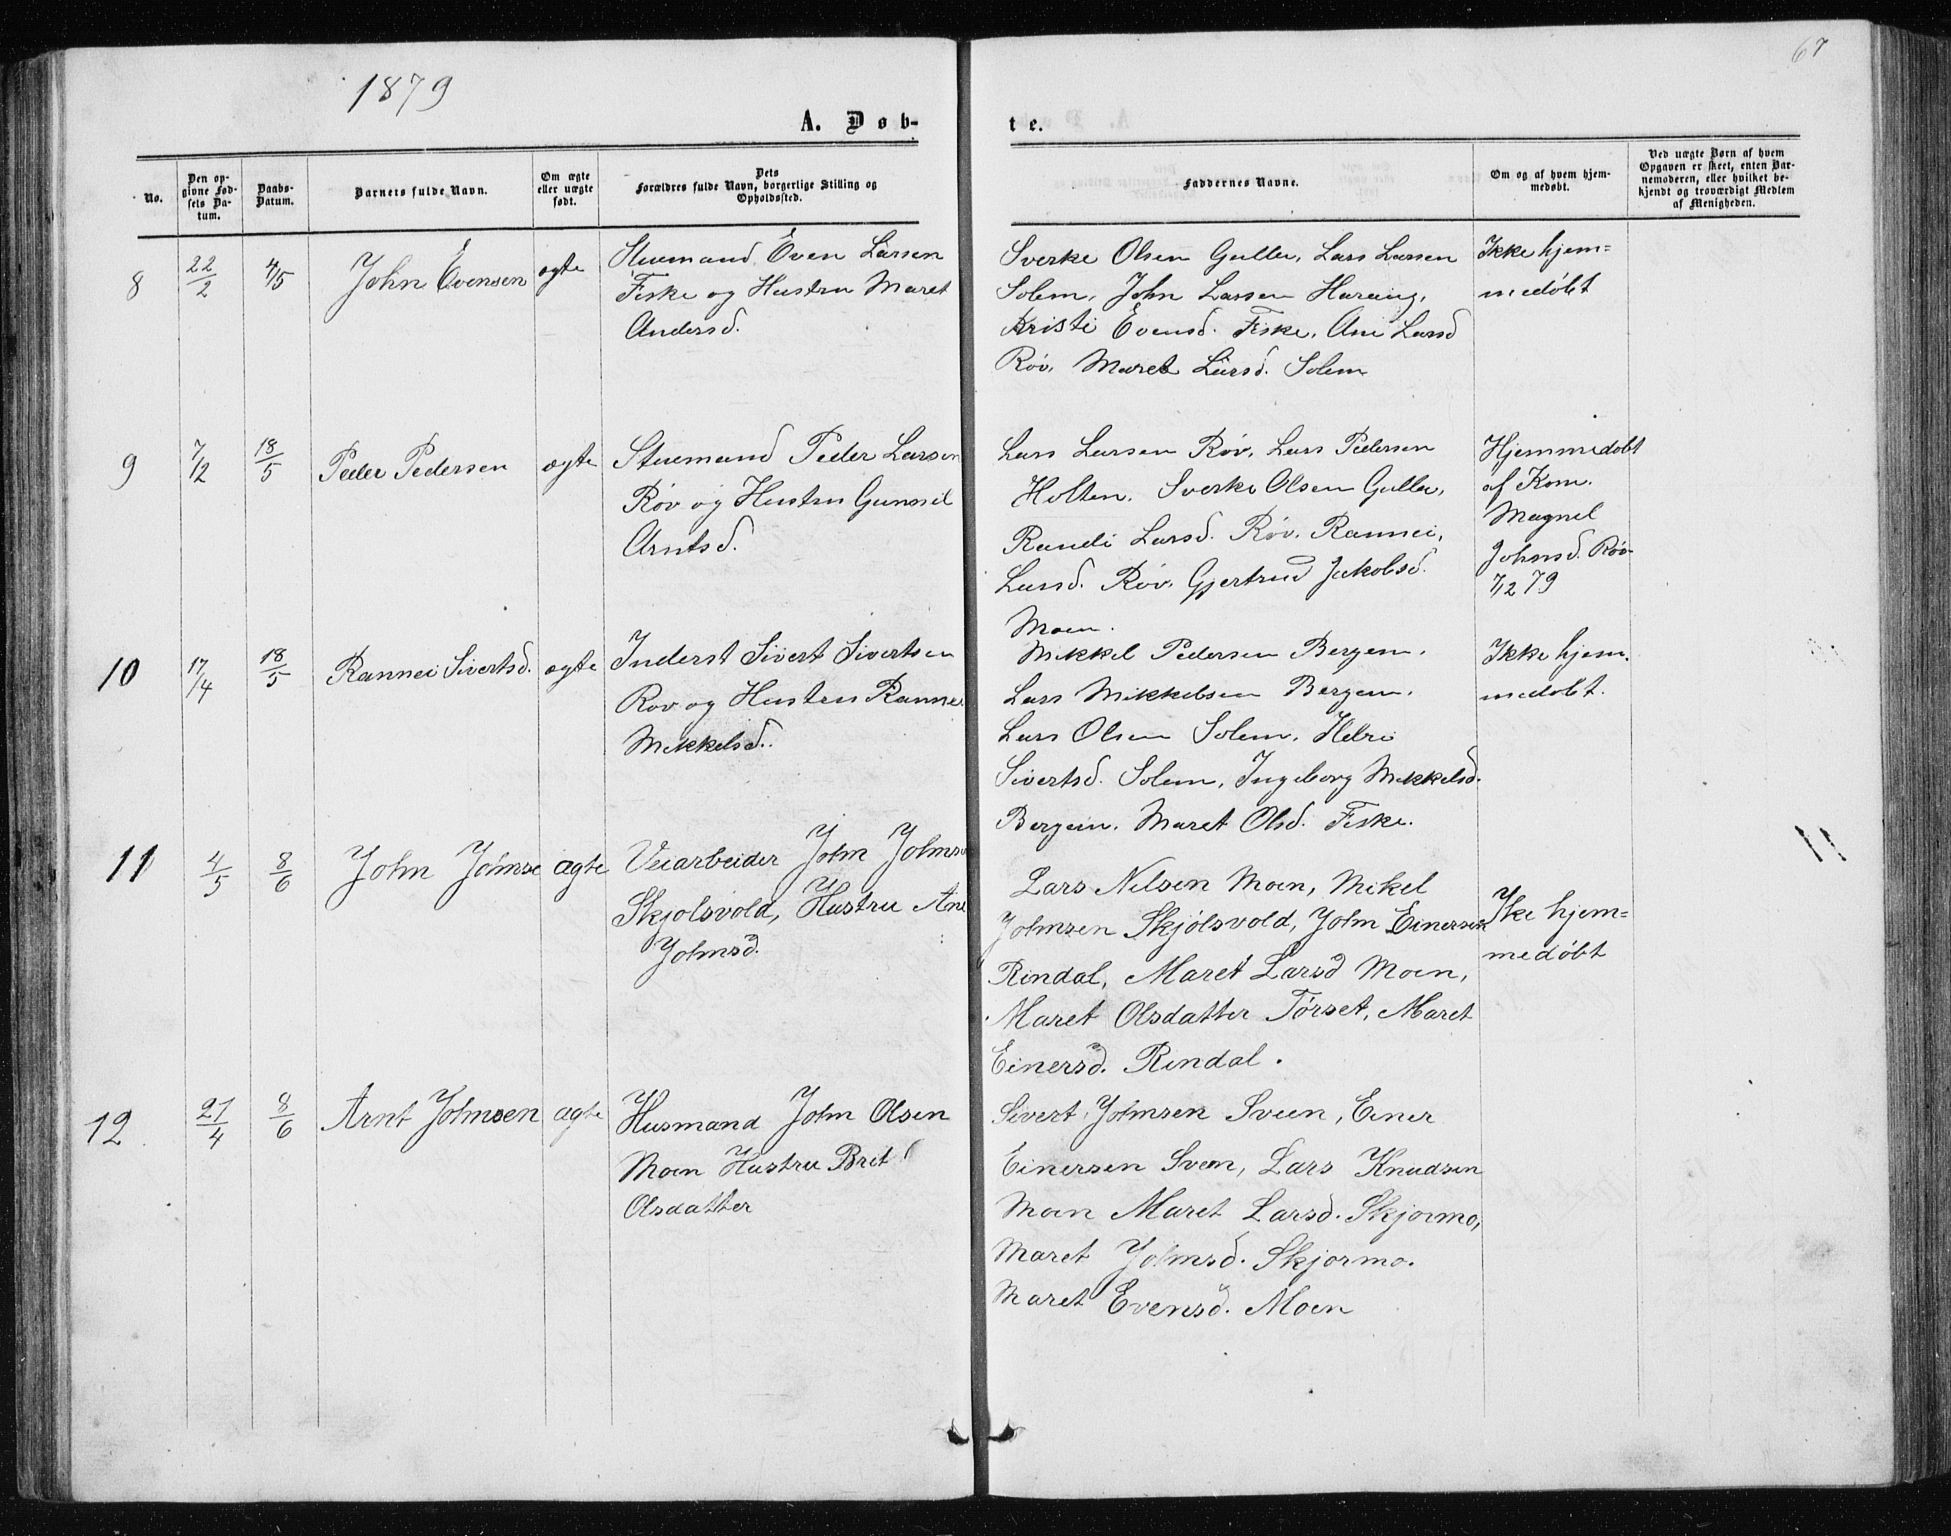 1879
67
A. Døb-
te.
No.
Den op-
givne Fød-
sels Da-
tum.
Daabs-
Datum.
Barnets fulde Navn.
Om ægte
eller uægte
født.
Dets
Forældres fulde Navn, borgerlige Stilling og
Opholdssted.
Faddernes Navne.
Om og af hvem hjem-
medøbt.
Ved uægte Børn af hvem
Opgaven er skeet, enten Bar-
nemoderen, eller hvilket be-
kjendt og troværdigt Medlem
af Menigheden.
8
22/2
4/5
John Evensen
ægte
Stuemand Even Larsen
Fiske og Hustru Maret
Andersd.
Sverke Olsen Gulla, Lars Larsen
Solem, John Larsen Haraug,
Kristi Evensd. Fiske, Ane Larsd
Røv, Maret Larsd. Solem
Ikke hjem=
medøbt
9
7/2
18/5
Peder Pedersen
ægte
Stuemand Peder Larsen
Røv og Hustru Gunnil
Arntsd.
Lars Larsen Røv, Lars Pedersen
Holten, Sverke Olsen Gulla,
Randi Larsd. Røv, Rannei,
Larsd. Røv, Gjertrud Jakobsd.
Moen.
Hjemmedøbt
af Kom.
Magnil
Johnsd. Røv
7/2 79
10
17/4
18/5
Rannei Sivertsd.
ægte
Inderst Sivert Sivertsen
Røv og Hustru Rannei
Mikkelsd.
Mikkel Pedersen Bergem,
Lars Mikkelsen Bergem,
Lars Olsen Solem, Helri
Sivertsd. Solem, Ingeborg Mikkelsd.
Bergem, Maret Olsd. Fiske.
Ikke hjem.
medøbt.
11
4/5
8/6
John Johnse
ægte
Veiarbeider John Johnsen
Skjølsvold, Hustru Ane
Johnsd.
Lars Nilsen Moen, Mikel
Johnsen Skjølsvold, John Einersen
Rindal, Maret Larsd Moen,
Maret Olsdatter Tørset, Maret
Einersd. Rindal.
Ike hjem=
medøbt
12
27/4
8/6
Arnt Johnsen
ægte
Husmand John Olsen
Moen Hustru Brit
Olsdatter
Sivert Johnsen Sveen, Einer
Einersen Sveen, Lars Knudsen
Moen Maret Larsd. Skjørmo,
Maret Johnsd. Skjørmo.
Maret Evensd. Moen